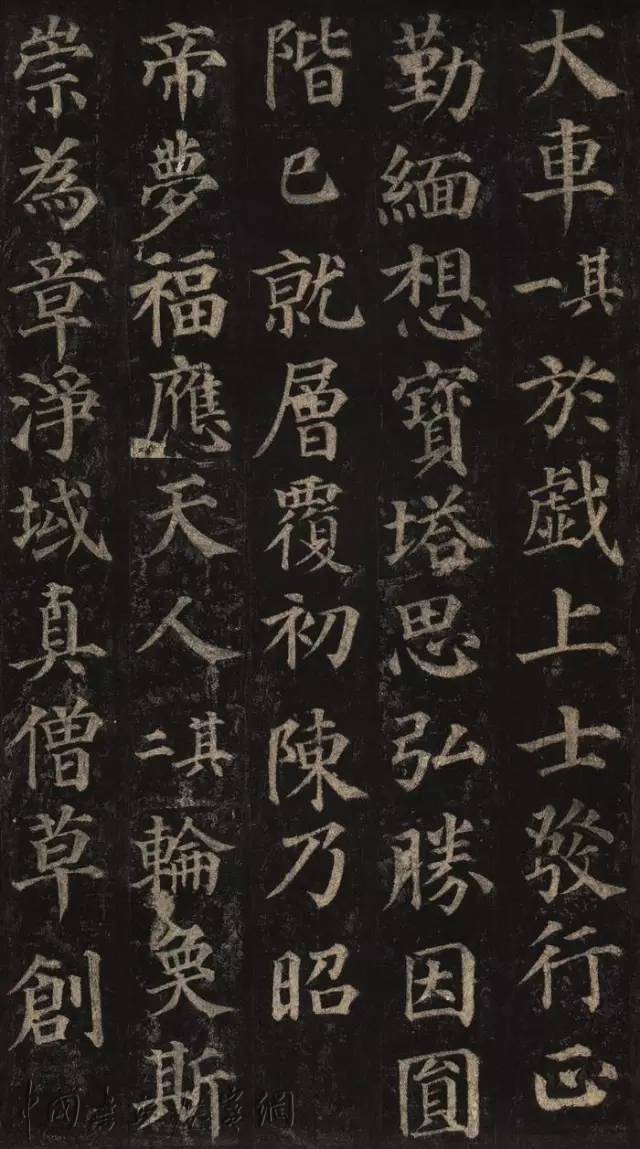 大車其一於戯上士發行正
勤緬想寶塔思弘勝因圎
階已就層覆初陳乃昭
帝夢福應天人其二輪奐斯
崇為章淨域真僧草創